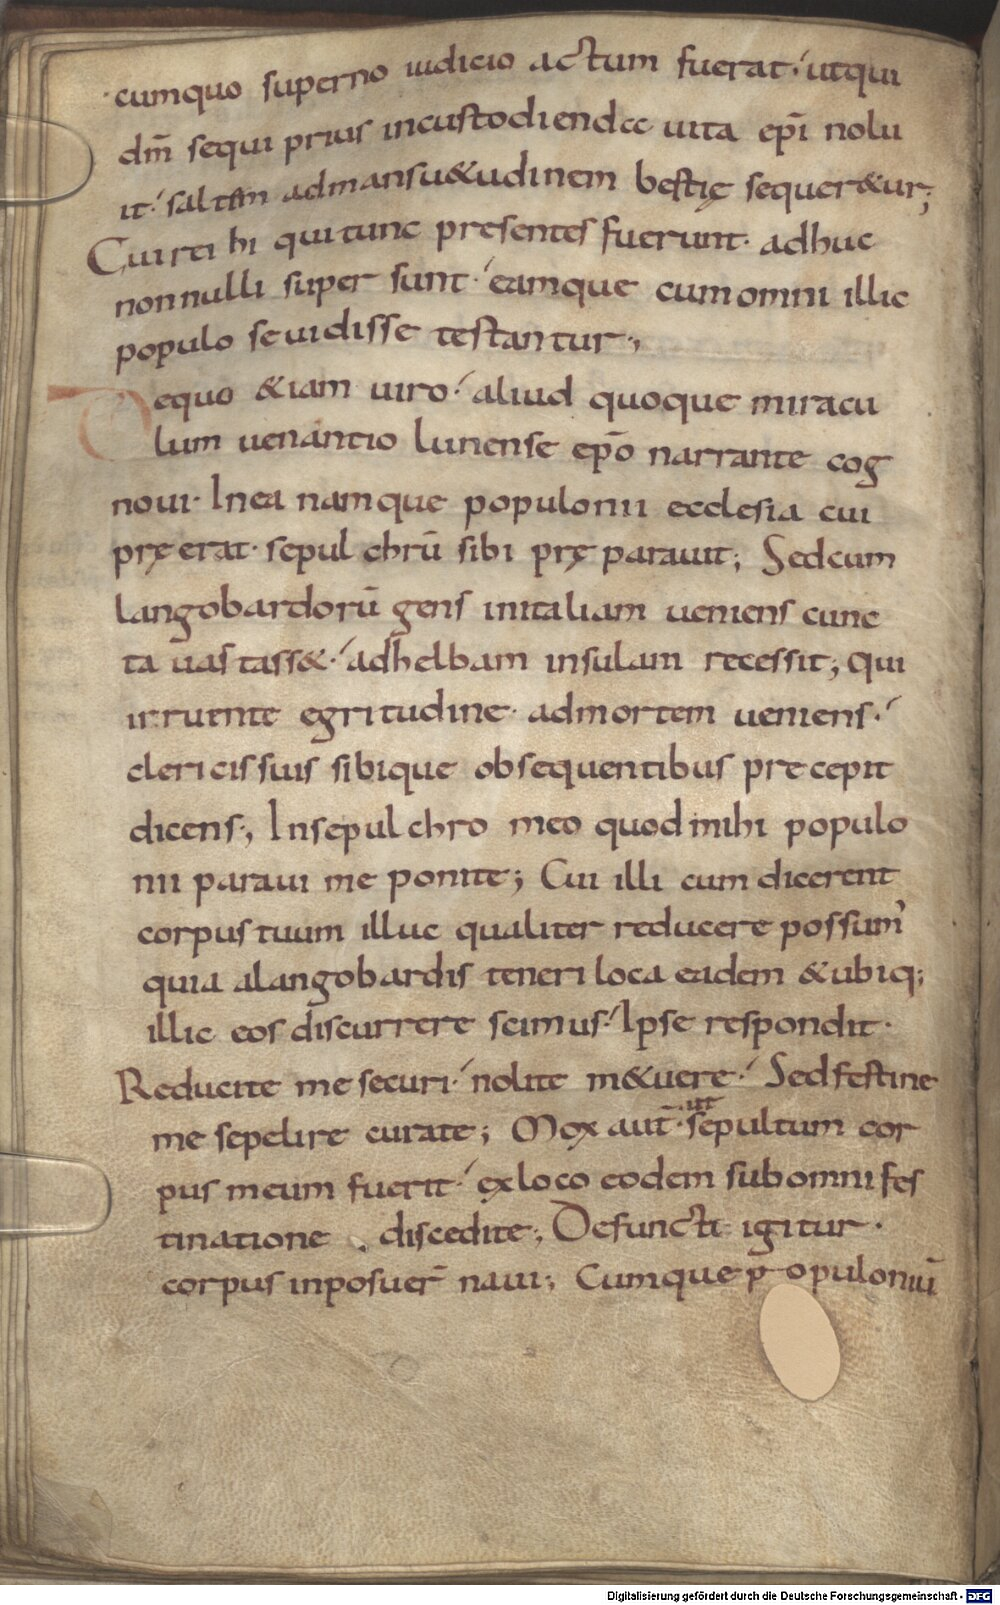 cumquo superno iudicio actum fuerat·́ ut qui
dm̄ sequi prius in custodiendae uita ep̄i nolu
it·́ saltem ad mansu&udinem bestię sequer&ur;
Cui rei hi qui tunc presentes fuerunt· adhuc
non nulli super sunt·́ eamque cum omni illic
populo se uidisse testantur;
De quo &iam uiro·́ aliud quoque miracu
lum uenantio lunense ep̄o narrante cog
noui· In ea namque populonii ecclesia cui
pręerat· sepulchrū sibi pręparauit; Sed cum
langobardorū gens in italiam ueniens cunc
ta uastass&·́ ad helbam insulam recessit; Qui
irruente egritudine· ad mortem ueniens·́
clericis suis sibique obsequentibus precepit
dicens; In sepulchro meo quod mihi populo
nii paraui me ponite; Cui illi cum dicerent
corpus tuum illuc qualiter reducere possum᾽
quia a langobardis teneri loca eadem & ubiq;
illic eos discurrere scimus·́ Ipse respondit·
Reducite me securi·́ nolite m&uere·́ Sed festine
me sepelire curate; Mox aut̄· ut sepultum cor
pus meum fuerit·́ ex loco eodem sub omni fes
tinatione discedite; Defuncti igitur·
corpus inposuer̄ naui; Cumque p̄ opuloniū
Digitalisierung gefördert durch die Deutsche Forschungsgemeinschaft - DFG